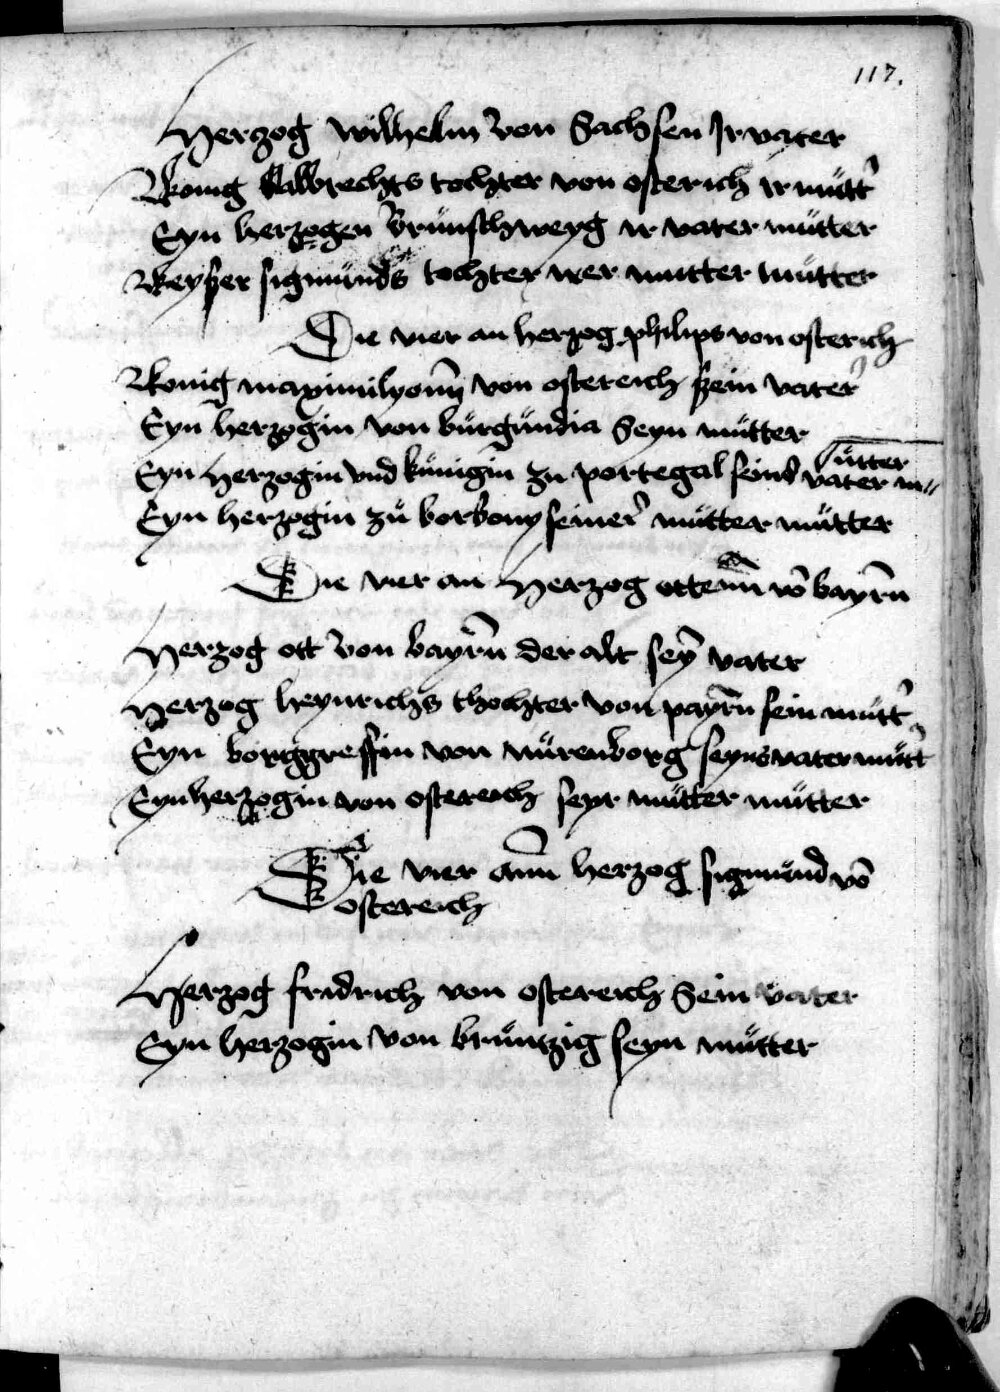 117.
Herzog wilhelm von Sachsen Ir vater
Konig Albrechts tochter von osterich ir mutt'
Eyn herzogen Brünschweyg ir vater mütter
Keyser sigmünds tochter irer mutter mütter
Die vier an herzog philips von osterich
Konig maximilyonn von ostereich sein vater
Eyn herzogin von bürgündia Seyn mütter
Eyn herzogin und künigin zu portegal seins vater m//
ütter
Eyn herzogin zü borbony seiner mütter mütter
Die vier an Herzog ottenn vō bayrn̄
Herzog ott von bayrn̄ der alt seȳ vater
Herzog heynrichs thochter von payrn̄ sein mütt'
Eyn borggreffin von nürenborg seyns vater mütt'
Eyn herzogin von ostereich seyr mütter mütter
Die vier ann herzog sigmünd vō
ostereich
Herzog fridrich von ostereich Sein vater
Eyn herzogin von brüntzig seyn mütter